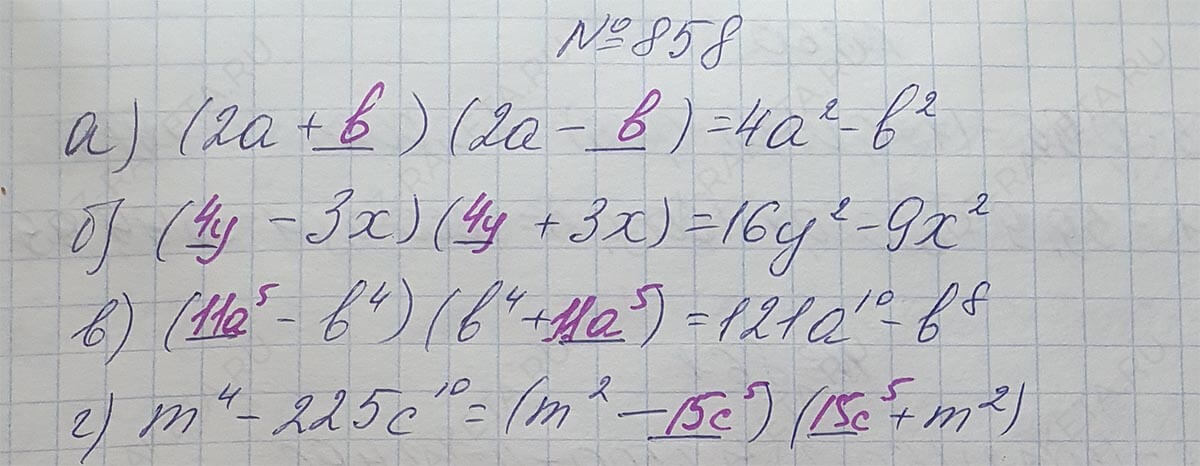 №858
а) (2a + b)(2a - b) = 4a² - b²
б) (4y - 3x)(4y + 3x) = 16y² - 9x²
в) (11a⁵ - b⁴)(b⁴ + 11a⁵) = 121a¹⁰ - b⁸
г) m⁴ - 225c¹⁰ = (m² - 15c⁵)(15c⁵ + m²)